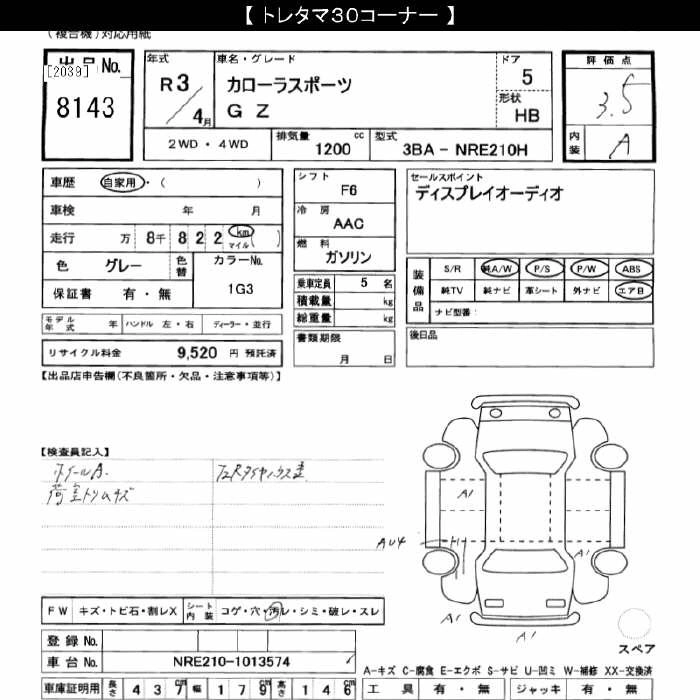 【 トレタマ30コーナー 】
(複合機)対応用紙
出品No.
[2039]
8143
年式
R3/4月
車名・グレード
カローラスポーツ
GZ
ドア
5
形状
HB
評価点
3.5
内装
A
2WD・4WD
排気量
1200 cc
型式
3BA - NRE210H
車歴
自家用・( )
車検
年 月
走行
万 8千 8 2 2 km マイル ( )
色
グレー
色替
カラーNo.
1G3
保証書
有・無
シフト
F6
冷房
AAC
燃料
ガソリン
乗車定員
5 名
積載量
kg
総重量
kg
書類期限
月 日
セールスポイント
ディスプレイオーディオ
装備品
S/R
純A/W
P/S
P/W
ABS
純TV
純ナビ
革シート
外ナビ
エアB
ナビ型番:
後日品
モデル年式
年
ハンドル 左・右
ディーラー・並行
リサイクル料金
9,520 円 預託済
【出品店申告欄(不良箇所・欠品・注意事項等)】
【検査員記入】
ホイールA.
荷室トリムキズ
A1
AU4
A1
A1
A1
スペア
FW
キズ・トビ石・割レX
シート内装
コゲ・穴・汚レ・シミ・破レ・スレ
登録No.
車台No.
NRE210-1013574
A-キズ C-腐食 E-エクボ S-サビ U-凹ミ W-補修 XX-交換済
車庫証明用
長さ
4 3 7 cm
幅
1 7 9 cm
高さ
1 4 6 cm
工具
有・無
ジャッキ
有・無